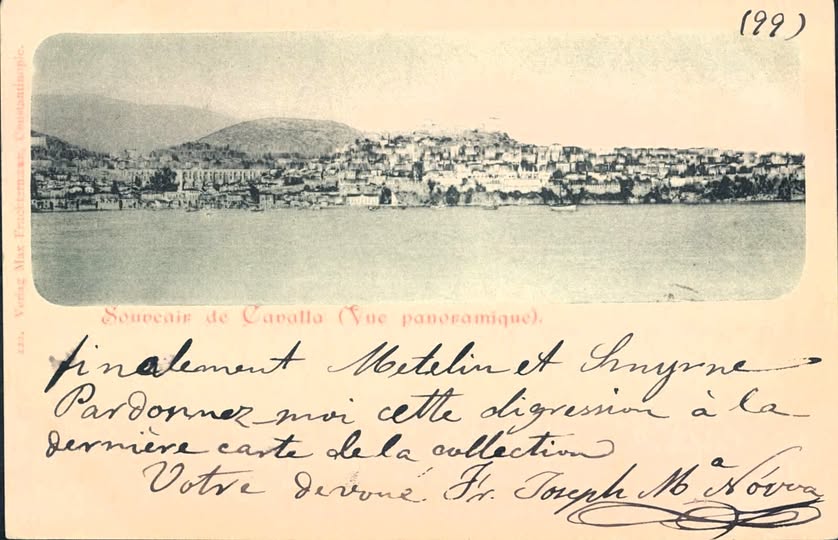 (99)
Souvenir de Cavalla (Vue panoramique).
finalement Metelin et Smyrne
Pardonnez-moi cette digression à la
dernière carte de la collection
Votre devoué. Fr. Joseph Mª Nóvoa
422. Verlag Max Fruchtermann, Constantinople.